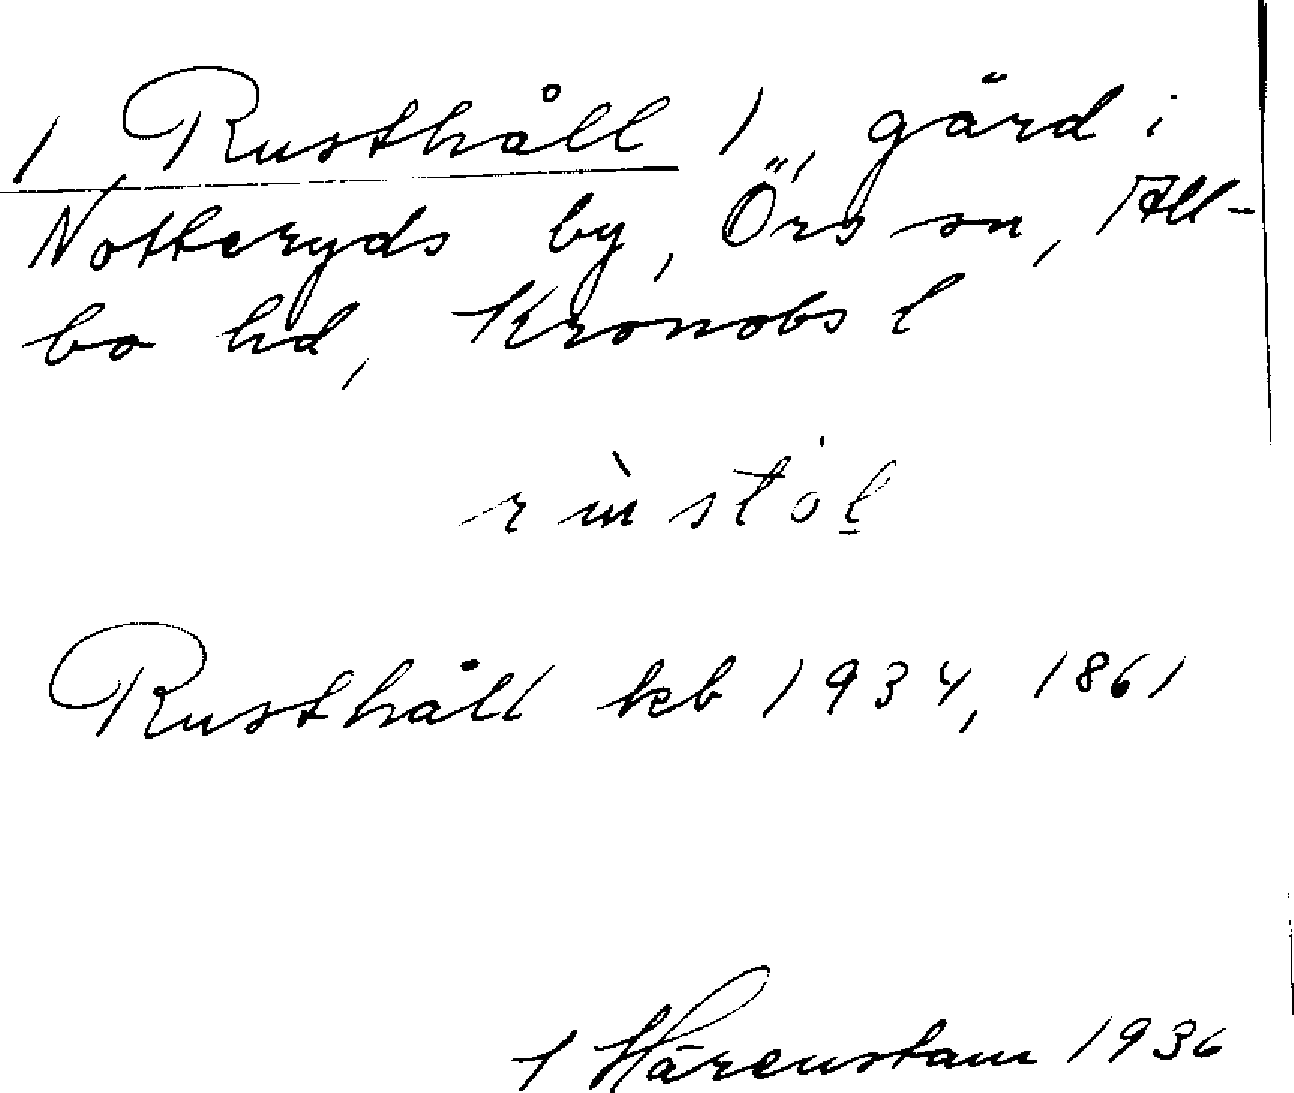 1 Rusthåll 1, gård i
Notteryds by, Örs sn, All-
bo hd, Kronobs l
rùstòl
Rusthåll kb 1934, 1861
Härenstam 1936